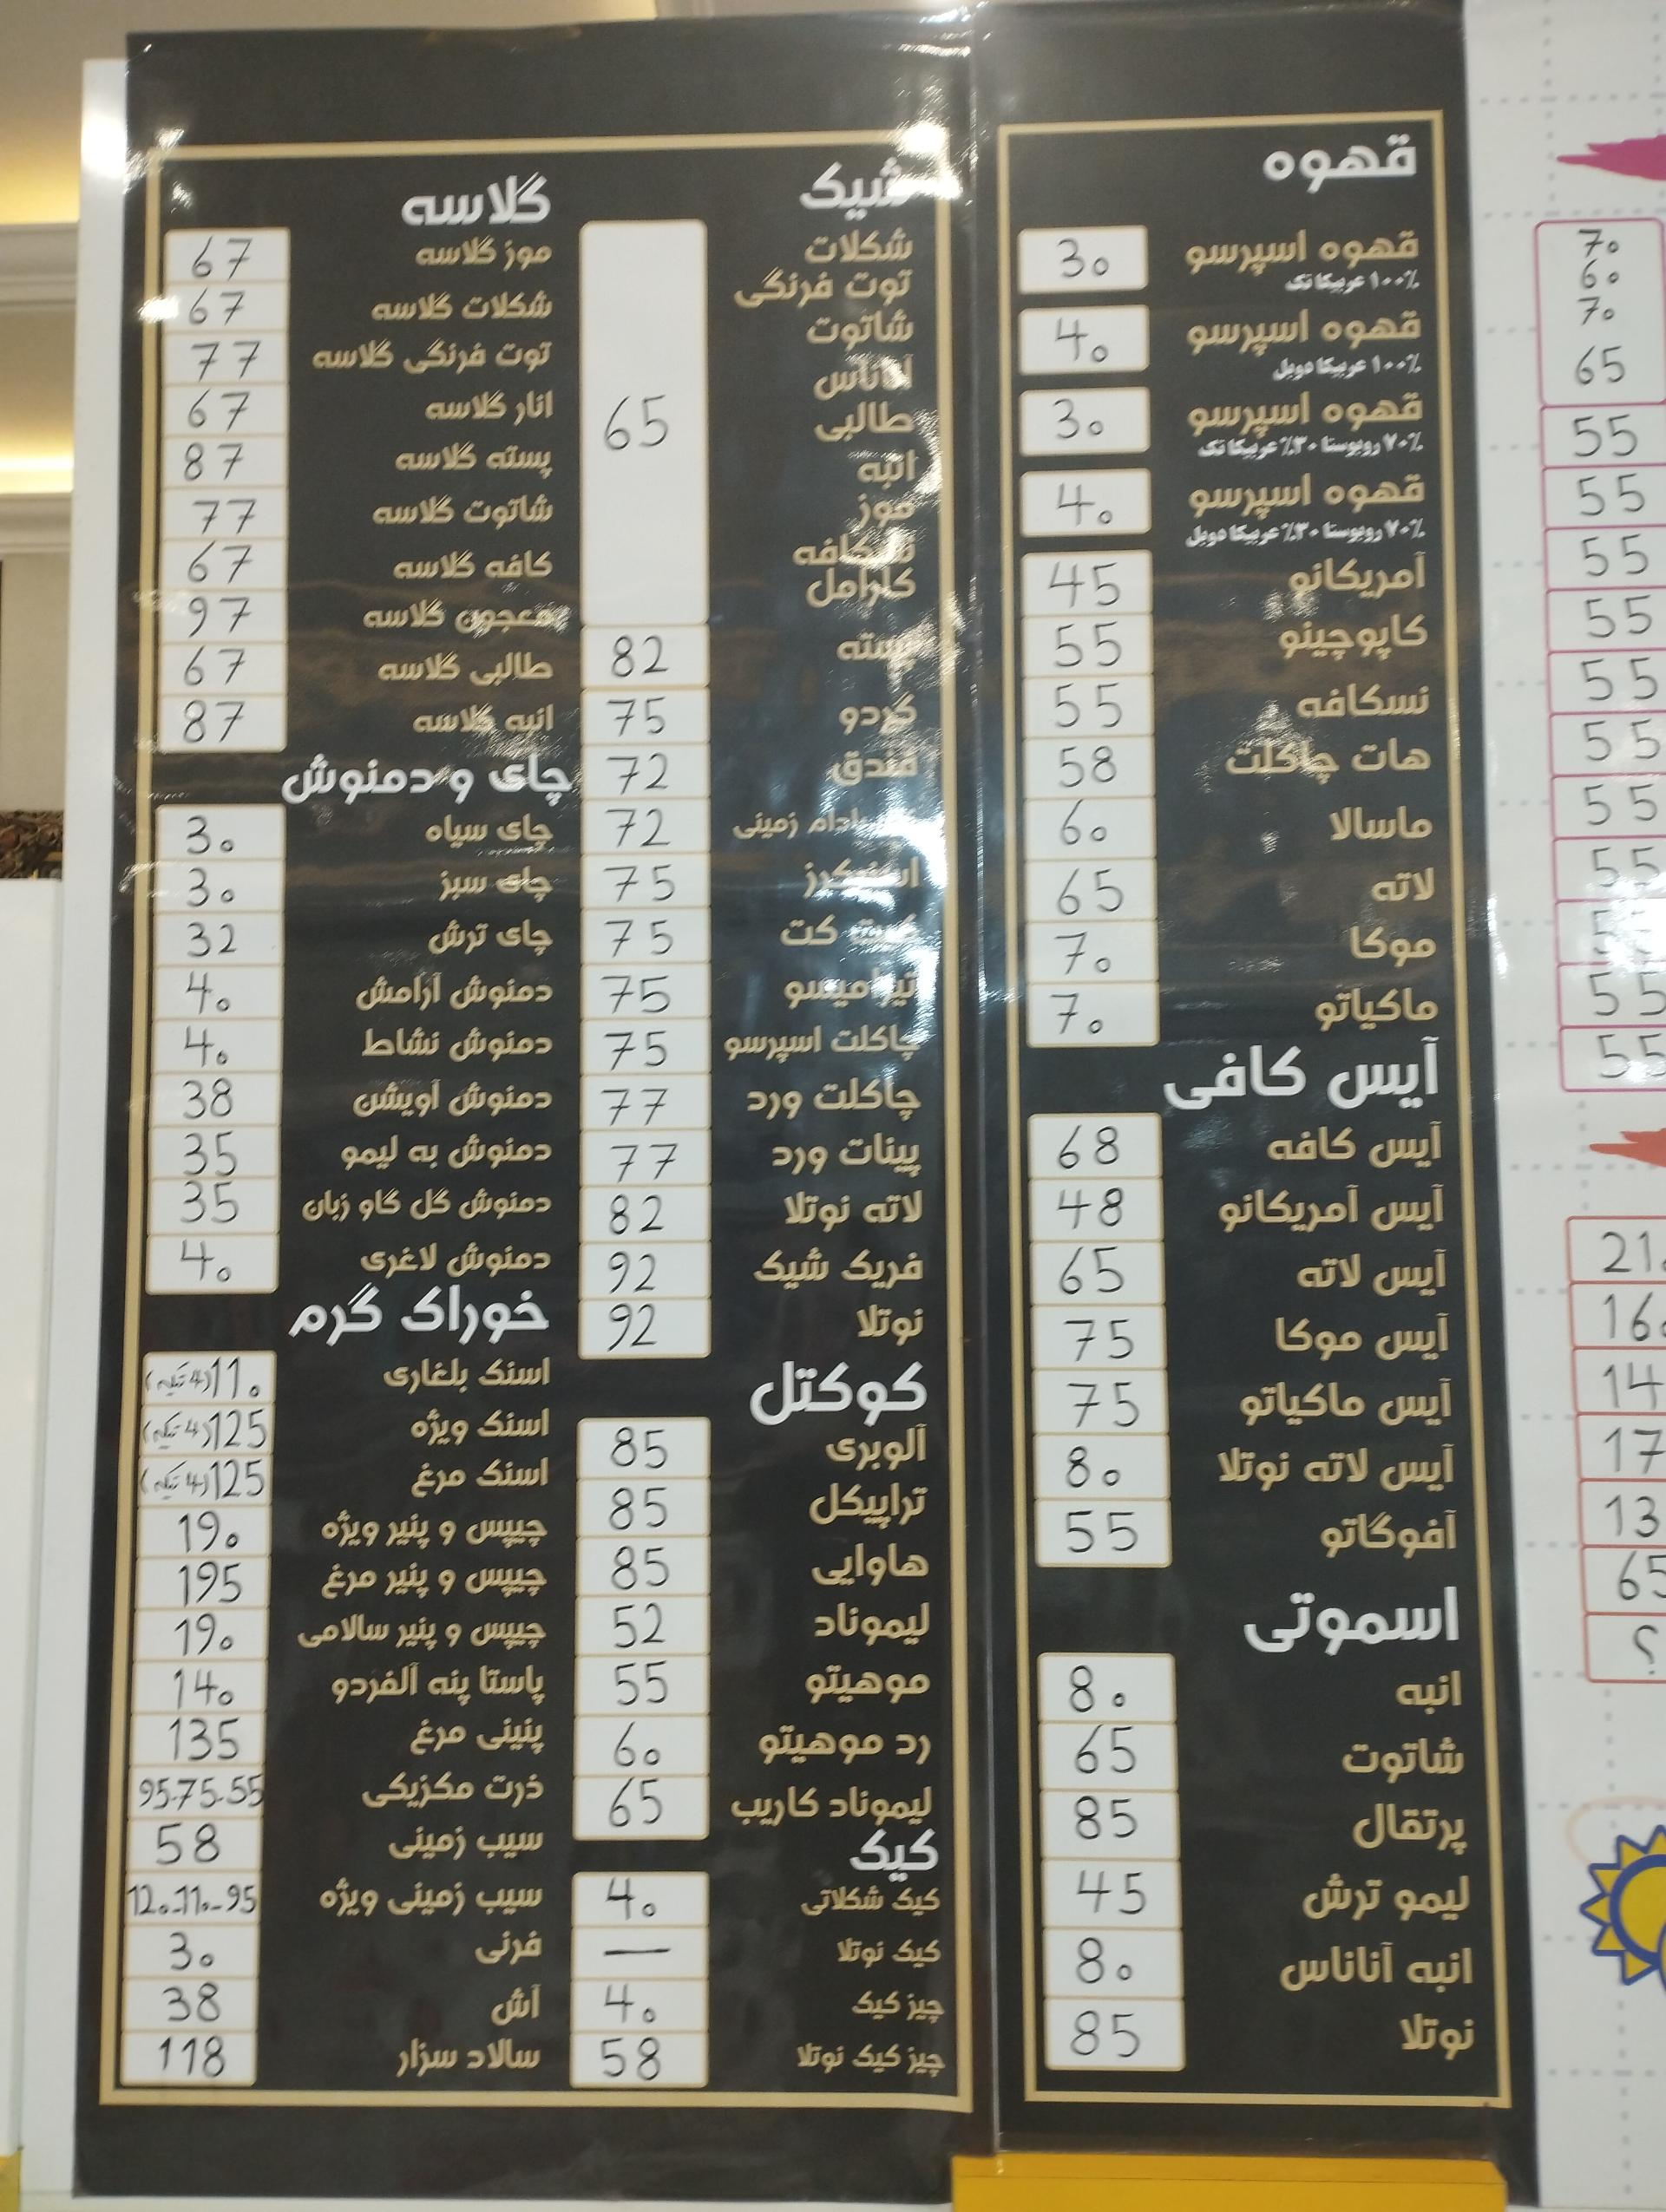 قهوه
قهوه اسپرسو 30
۱۰۰٪ عربیکا تک
قهوه اسپرسو 40
۱۰۰٪ عربیکا دوبل
قهوه اسپرسو 30
۷۰٪ روبوستا ۳۰٪ عربیکا تک
قهوه اسپرسو 40
۷۰٪ روبوستا ۳۰٪ عربیکا دوبل
آمریکانو 45
کاپوچینو 55
نسکافه 55
هات چاکلت 58
ماسالا 60
لاته 65
موکا 70
ماکیاتو 70
آیس کافی
آیس کافه 68
آیس آمریکانو 48
آیس لاته 65
آیس موکا 75
آیس ماکیاتو 75
آیس لاته نوتلا 80
آفوگاتو 55
اسموتی
انبه 80
شاتوت 65
پرتقال 85
لیمو ترش 45
انبه آناناس 80
نوتلا 85
شیک
شکلات
توت فرنگی
شاتوت
آناناس
طالبی 65
انبه
موز
نسکافه
کارامل
پسته 82
گردو 75
فندق 72
بادام زمینی 72
اسنیکرز 75
کیت کت 75
تیرامیسو 75
چاکلت اسپرسو 75
چاکلت ورد 77
پینات ورد 77
لاته نوتلا 82
فریک شیک 92
نوتلا 92
کوکتل
آلوبری 85
تراپیکل 85
هاوایی 85
لیموناد 52
موهیتو 55
رد موهیتو 60
لیموناد کاریب 65
کیک
کیک شکلاتی 40
کیک نوتلا —
چیز کیک 40
چیز کیک نوتلا 58
گلاسه
موز گلاسه 67
شکلات گلاسه 67
توت فرنگی گلاسه 77
انار گلاسه 67
پسته گلاسه 87
شاتوت گلاسه 77
کافه گلاسه 67
معجون گلاسه 97
طالبی گلاسه 67
انبه گلاسه 87
چای و دمنوش
چای سیاه 30
چای سبز 30
چای ترش 32
دمنوش آرامش 40
دمنوش نشاط 40
دمنوش آویشن 38
دمنوش به لیمو 35
دمنوش گل گاو زبان 35
دمنوش لاغری 40
خوراک گرم
اسنک بلغاری 110 (4 تیکه)
اسنک ویژه 125 (4 تیکه)
اسنک مرغ 125 (4 تیکه)
چیپس و پنیر ویژه 190
چیپس و پنیر مرغ 195
چیپس و پنیر سالامی 190
پاستا پنه آلفردو 140
پنینی مرغ 135
ذرت مکزیکی 95-75-55
سیب زمینی 58
سیب زمینی ویژه 120-110-95
فرنی 30
آش 38
سالاد سزار 118
70
60
70
65
55
55
55
55
55
55
55
55
55
55
65
؟